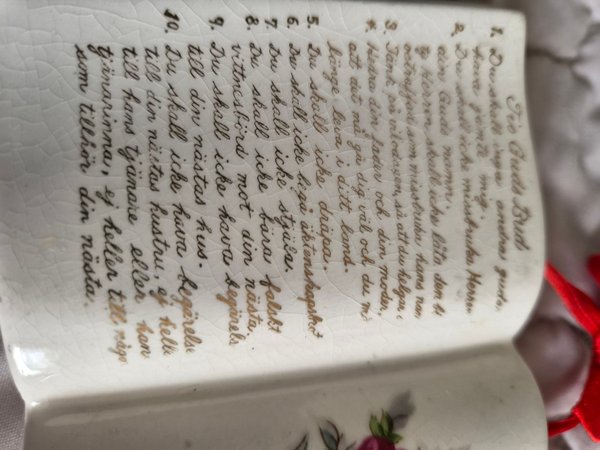 Tio Guds Bud
1. Du skall inga andra gudar
hava jämte mig.
2. Du skall icke missbruka Herren
din Guds namn,
ty Herren skall icke låta den bl
ostraffad som missbrukar hans nam
3. Tänk på vilodagen, så att du helgar d
4. Hedra din fader och din moder,
att det må gå dig väl och du må
länge leva i ditt land.
5. Du skall icke dräpa.
6. Du skall icke begå äktenskapsbrott
7. Du skall icke stjäla.
8. Du skall icke bära falskt
vittnesbörd mot din nästa.
9. Du skall icke hava begärels
till din nästas hus.
10. Du skall icke hava begärelse
till din nästas hustru, ej helle
till hans tjänare eller han
tjänarinna, ej heller till någo
som tillhör din nästa.